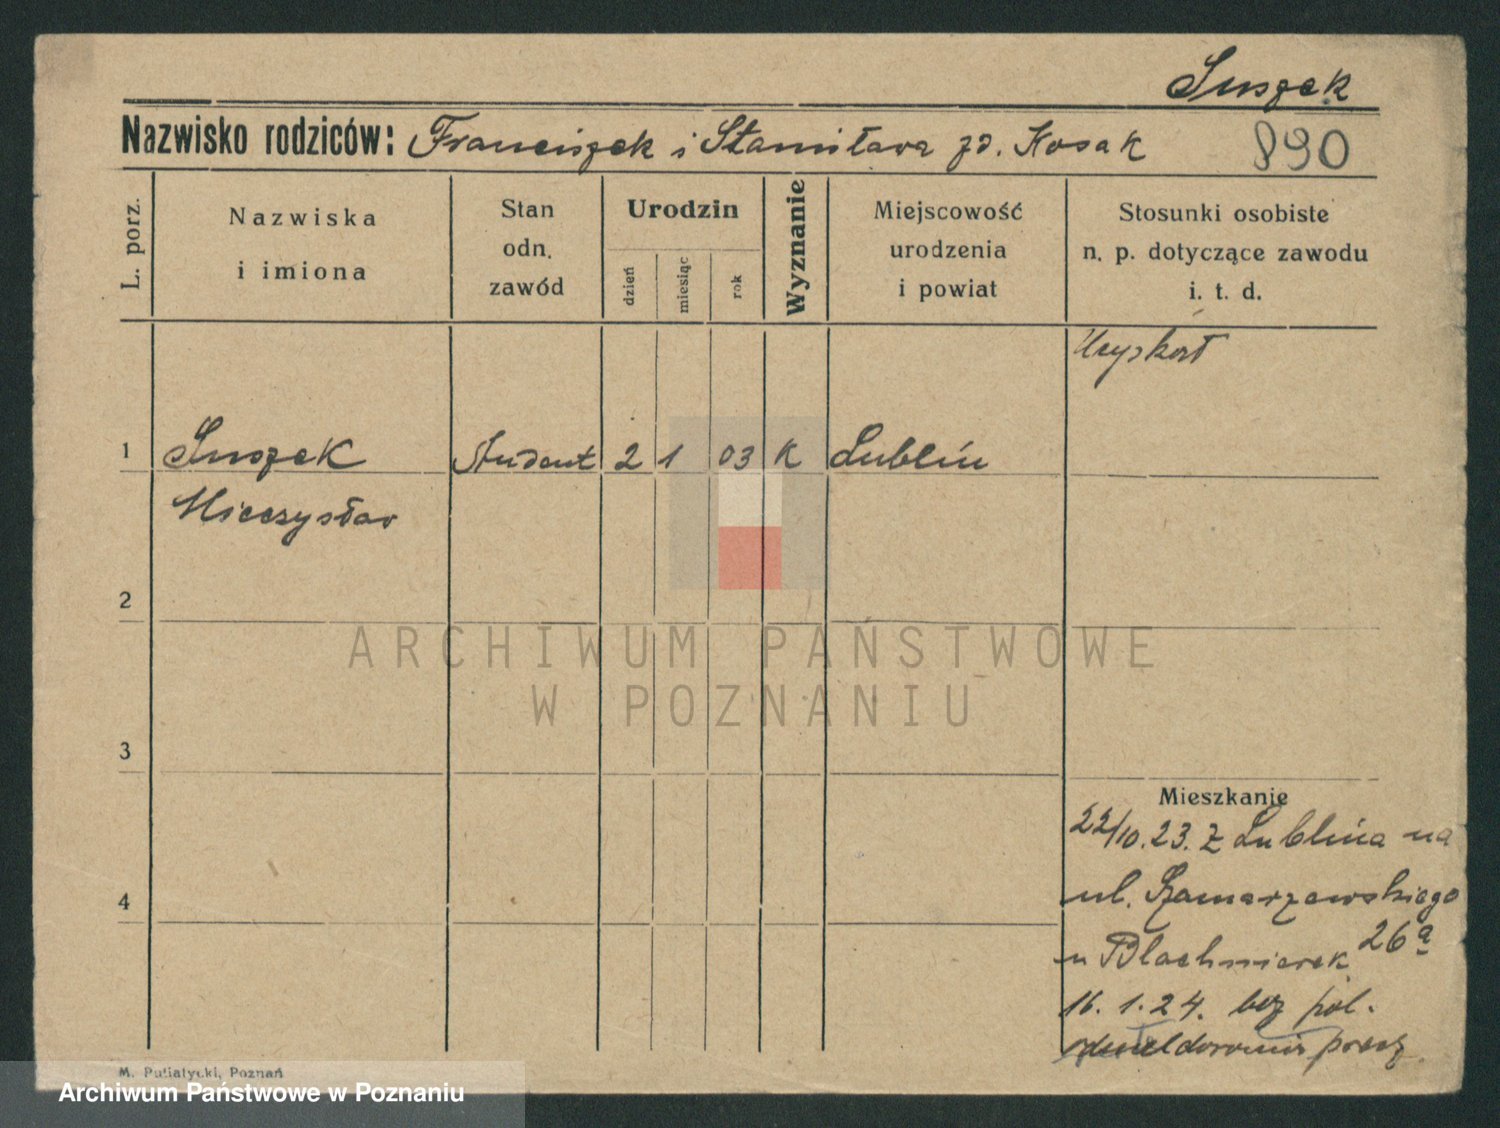 Suszek
Nazwisko rodziców: Franciszek i Stanisława zd. Kosak 890
L. porz.
Nazwiska
i imiona
Stan
odn.
zawód
Urodzin
dzień
miesiąc
rok
Wyznanie
Miejscowość
urodzenia
i powiat
Stosunki osobiste
n. p. dotyczące zawodu
i. t. d.
1 Suszek Student 2 1 03 K Lublin
Mieczysław
2
ARCHIWUM PAŃSTWOWE
W POZNANIU
3
Mieszkanie
22/10.23. z Lublina na
ul. Szamarzewskiego
26a
u Blachnierek
4
16. 1. 24. bez pol.
przez
M. Putiatycki, Poznań
Archiwum Państwowe w Poznaniu